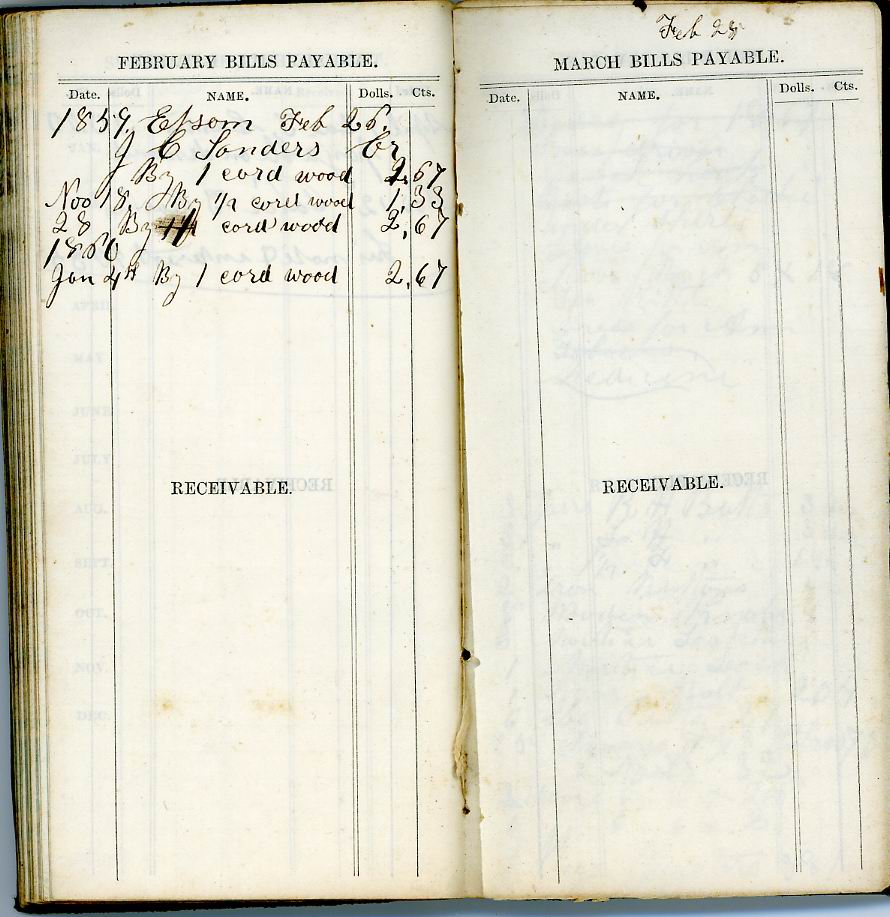 FEBRUARY BILLS PAYABLE.
Date. NAME. Dolls. Cts.
1859 Epsom Feb 26.
J C Sanders Cr
By 1 cord wood 2,67
Nov 18, By 1/2 cord wood 1,33
28 By cord wood 2,67
1860
Jan 4th By 1 cord wood 2,67
RECEIVABLE.
Feb 28
MARCH BILLS PAYABLE.
Date. NAME. Dolls. Cts.
RECEIVABLE.